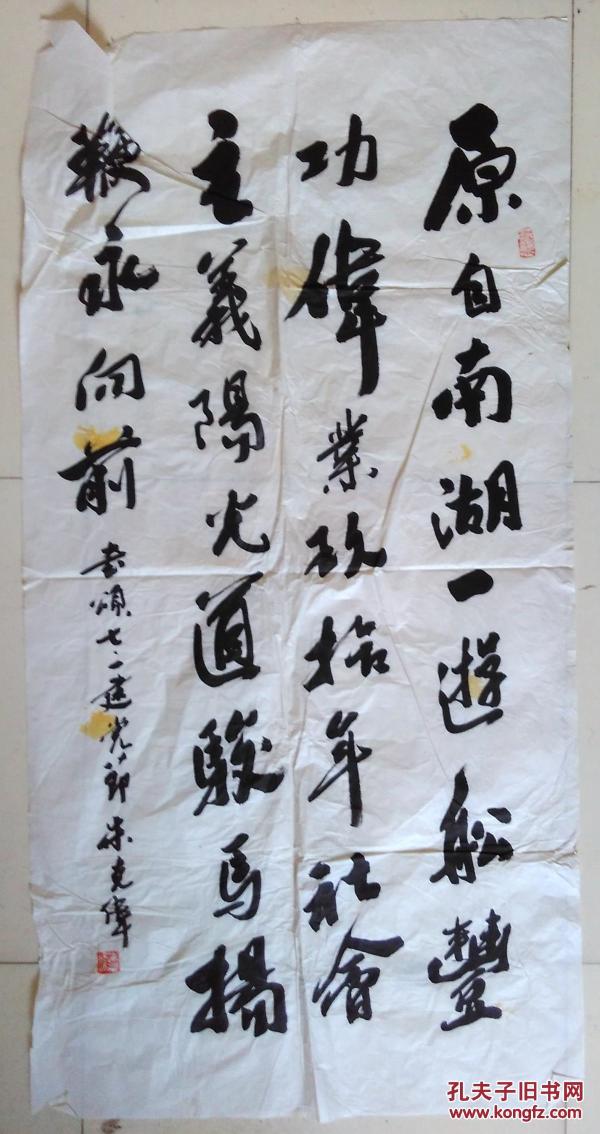 原自南湖一遊船豐
功偉業玖拾年社會
主義陽光道駿馬揚
鞭永向前
書頌七·一建党節 朱克偉
孔夫子旧书网
www.kongfz.com